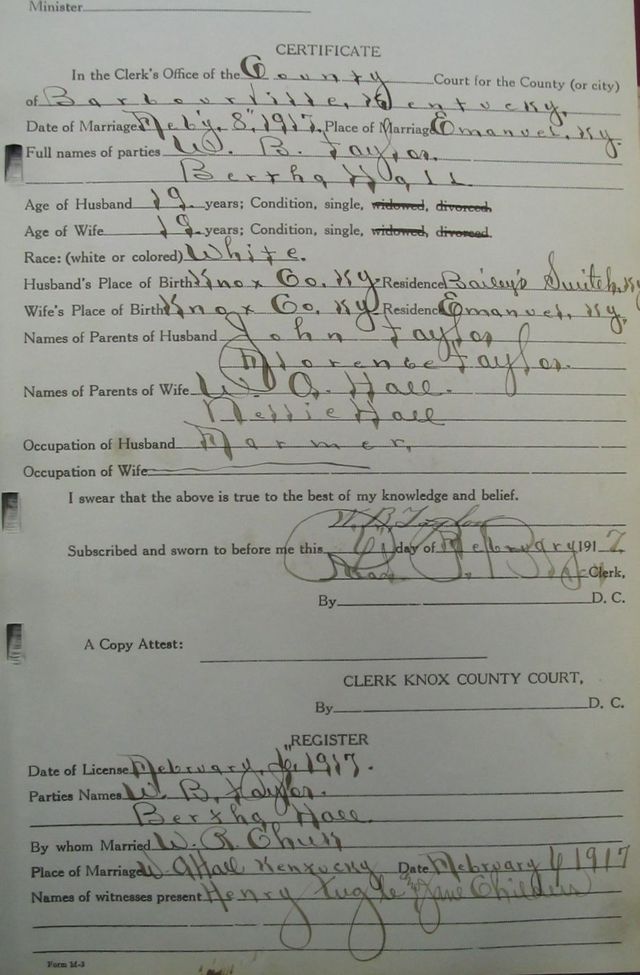 Minister
CERTIFICATE
In the Clerk's Office of the County Court for the County (or city)
of Barbourville, Kentucky,
Date of Marriage Feb'y, 8", 1917, Place of Marriage Emanuel, Ky.
Full names of parties W. B. Taylor.
Bertha Hall
Age of Husband 19 years; Condition, single, widowed, divorced.
Age of Wife 19 years; Condition, single, widowed, divorced.
Race: (white or colored) White.
Husband's Place of Birth Knox Co. Ky. Residence Bailey's Switch, Ky
Wife's Place of Birth Knox Co. Ky Residence Emanuel, Ky,
Names of Parents of Husband John Taylor
Florence Taylor.
Names of Parents of Wife Hall.
Nellie Hall
Occupation of Husband Farmer,
Occupation of Wife
I swear that the above is true to the best of my knowledge and belief.
W. B. Taylor
Subscribed and sworn to before me this day of February 1917
Clerk,
By D. C.
A Copy Attest:
CLERK KNOX COUNTY COURT,
By D. C.
REGISTER
Date of License February, 6", 1917.
Parties Names W. B. Taylor.
Bertha Hall
By whom Married W. R.
Place of Marriage Hall Kentucky Date February 1917
Names of witnesses present Henry Tugle & Jane Childers
Form M-3